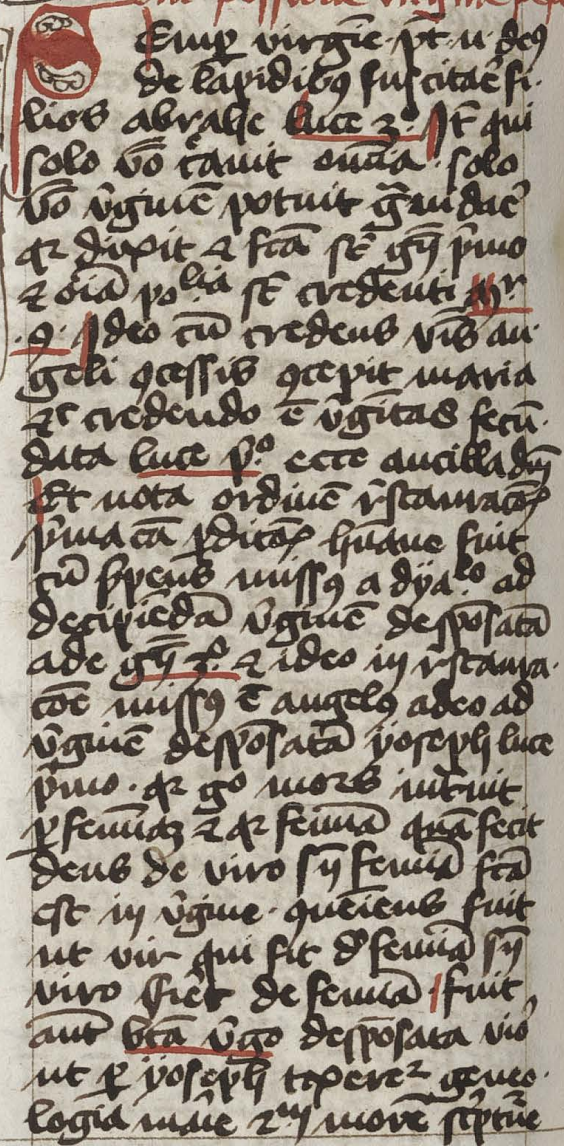 Semꝑ virgīe· pt̄ .n. deꝰ
de lapidibꝰ suscitar̄ fi·
lios abrahe luce 3º It̄ qui
solo v̄bo c̄avit om̄ia · solo
v̄bo v̄ginē potuit gᷓvidar̄
qꝛ dixit ⁊ fc̄a sūt gn̄ pͥmo
⁊ oīa poˡⁱᵃ st̄ credenti mʳ
·9· Ideo cū credens v̄bis an·
geli ꝯcessis ꝯcepit maria
⁊c̄ credendo ē v̄gītas fecū·
data luce pº ecce ancilla dn̄i
Et nota ordinē r̄stauracōꝭ
pͥma cā ꝑditōꝭ hūane fuit
cū s̄pens missꝰ a dyaˡº ad
decipiēdā v̄ginē despōsatā
ade gn̄ 3º ⁊ ideo in r̄staura·
cōe missꝰ ē angelꝰ a deo ad
v̄ginē despōsatā yoseph luce
pͥmo · qꝛ gº mors int̄uit
ꝑ feminaꝫ ⁊ qꝛ feminā quā fecit
deus de viro sn̄ feminā fc̄a
est in v̄gine · ꝯueniens fuit
ut vir qui fit de feminā sn̄
viro fier̄t de feminā fuit
aut̄ bt̄a v̄go despōsata viͦ
ut ꝑ yoseph texereᷓ geneo·
logia marie